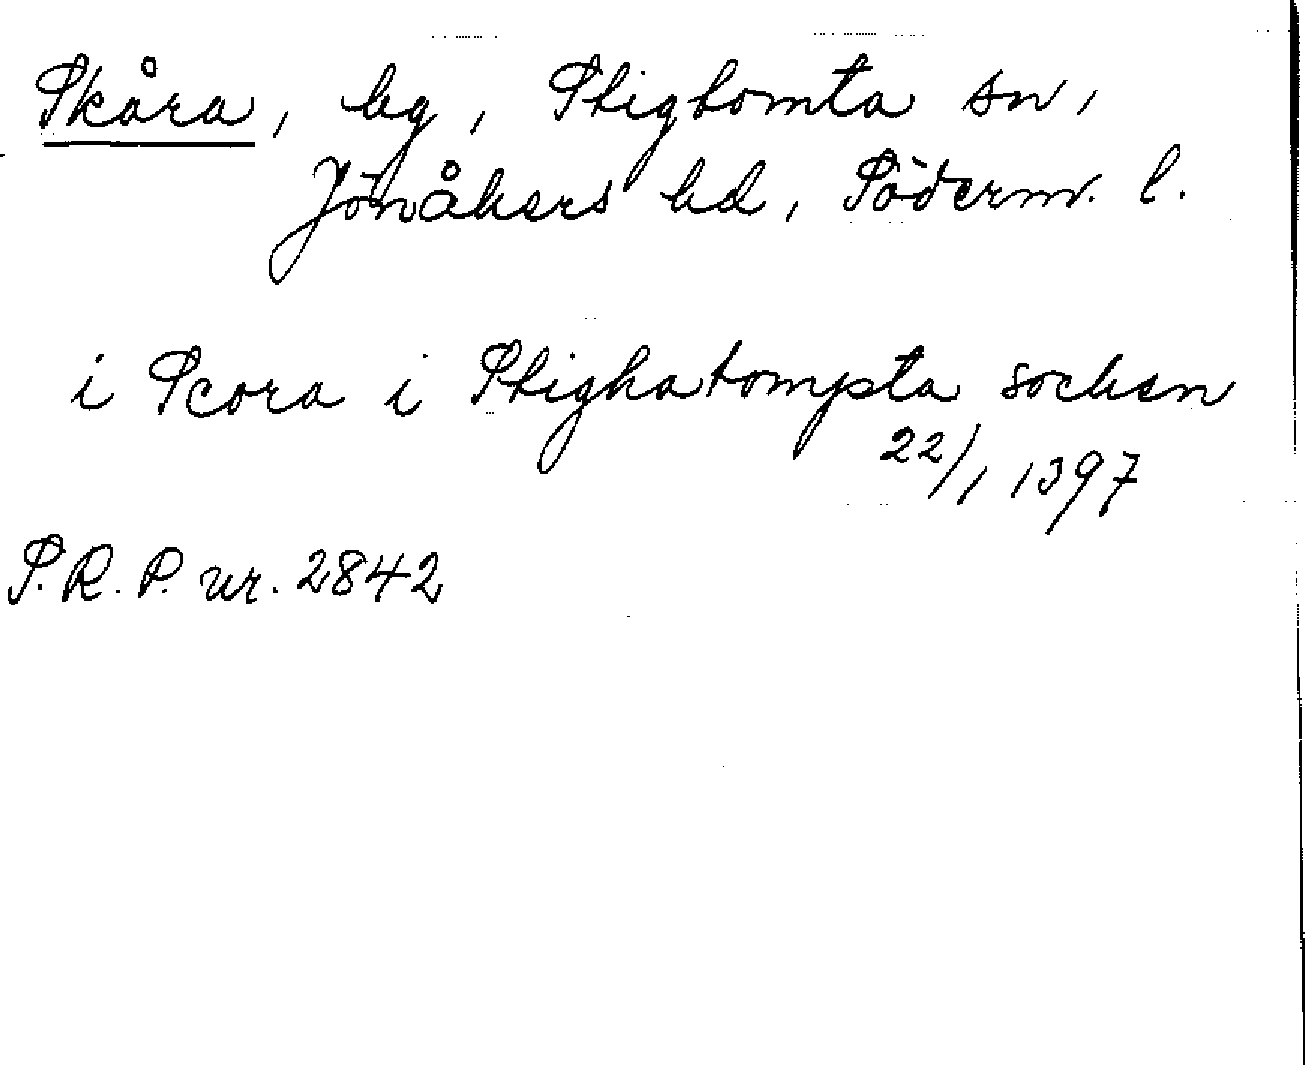 Skåra, by, Stigtomta sn,
Jönåkers hd, Söderm. l.
i Scora i Stighatompsta socken
22/1 1397
S.R.P. nr. 2842